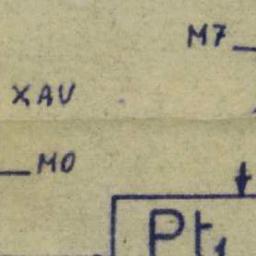 M7
XAV
M0
Pt₁